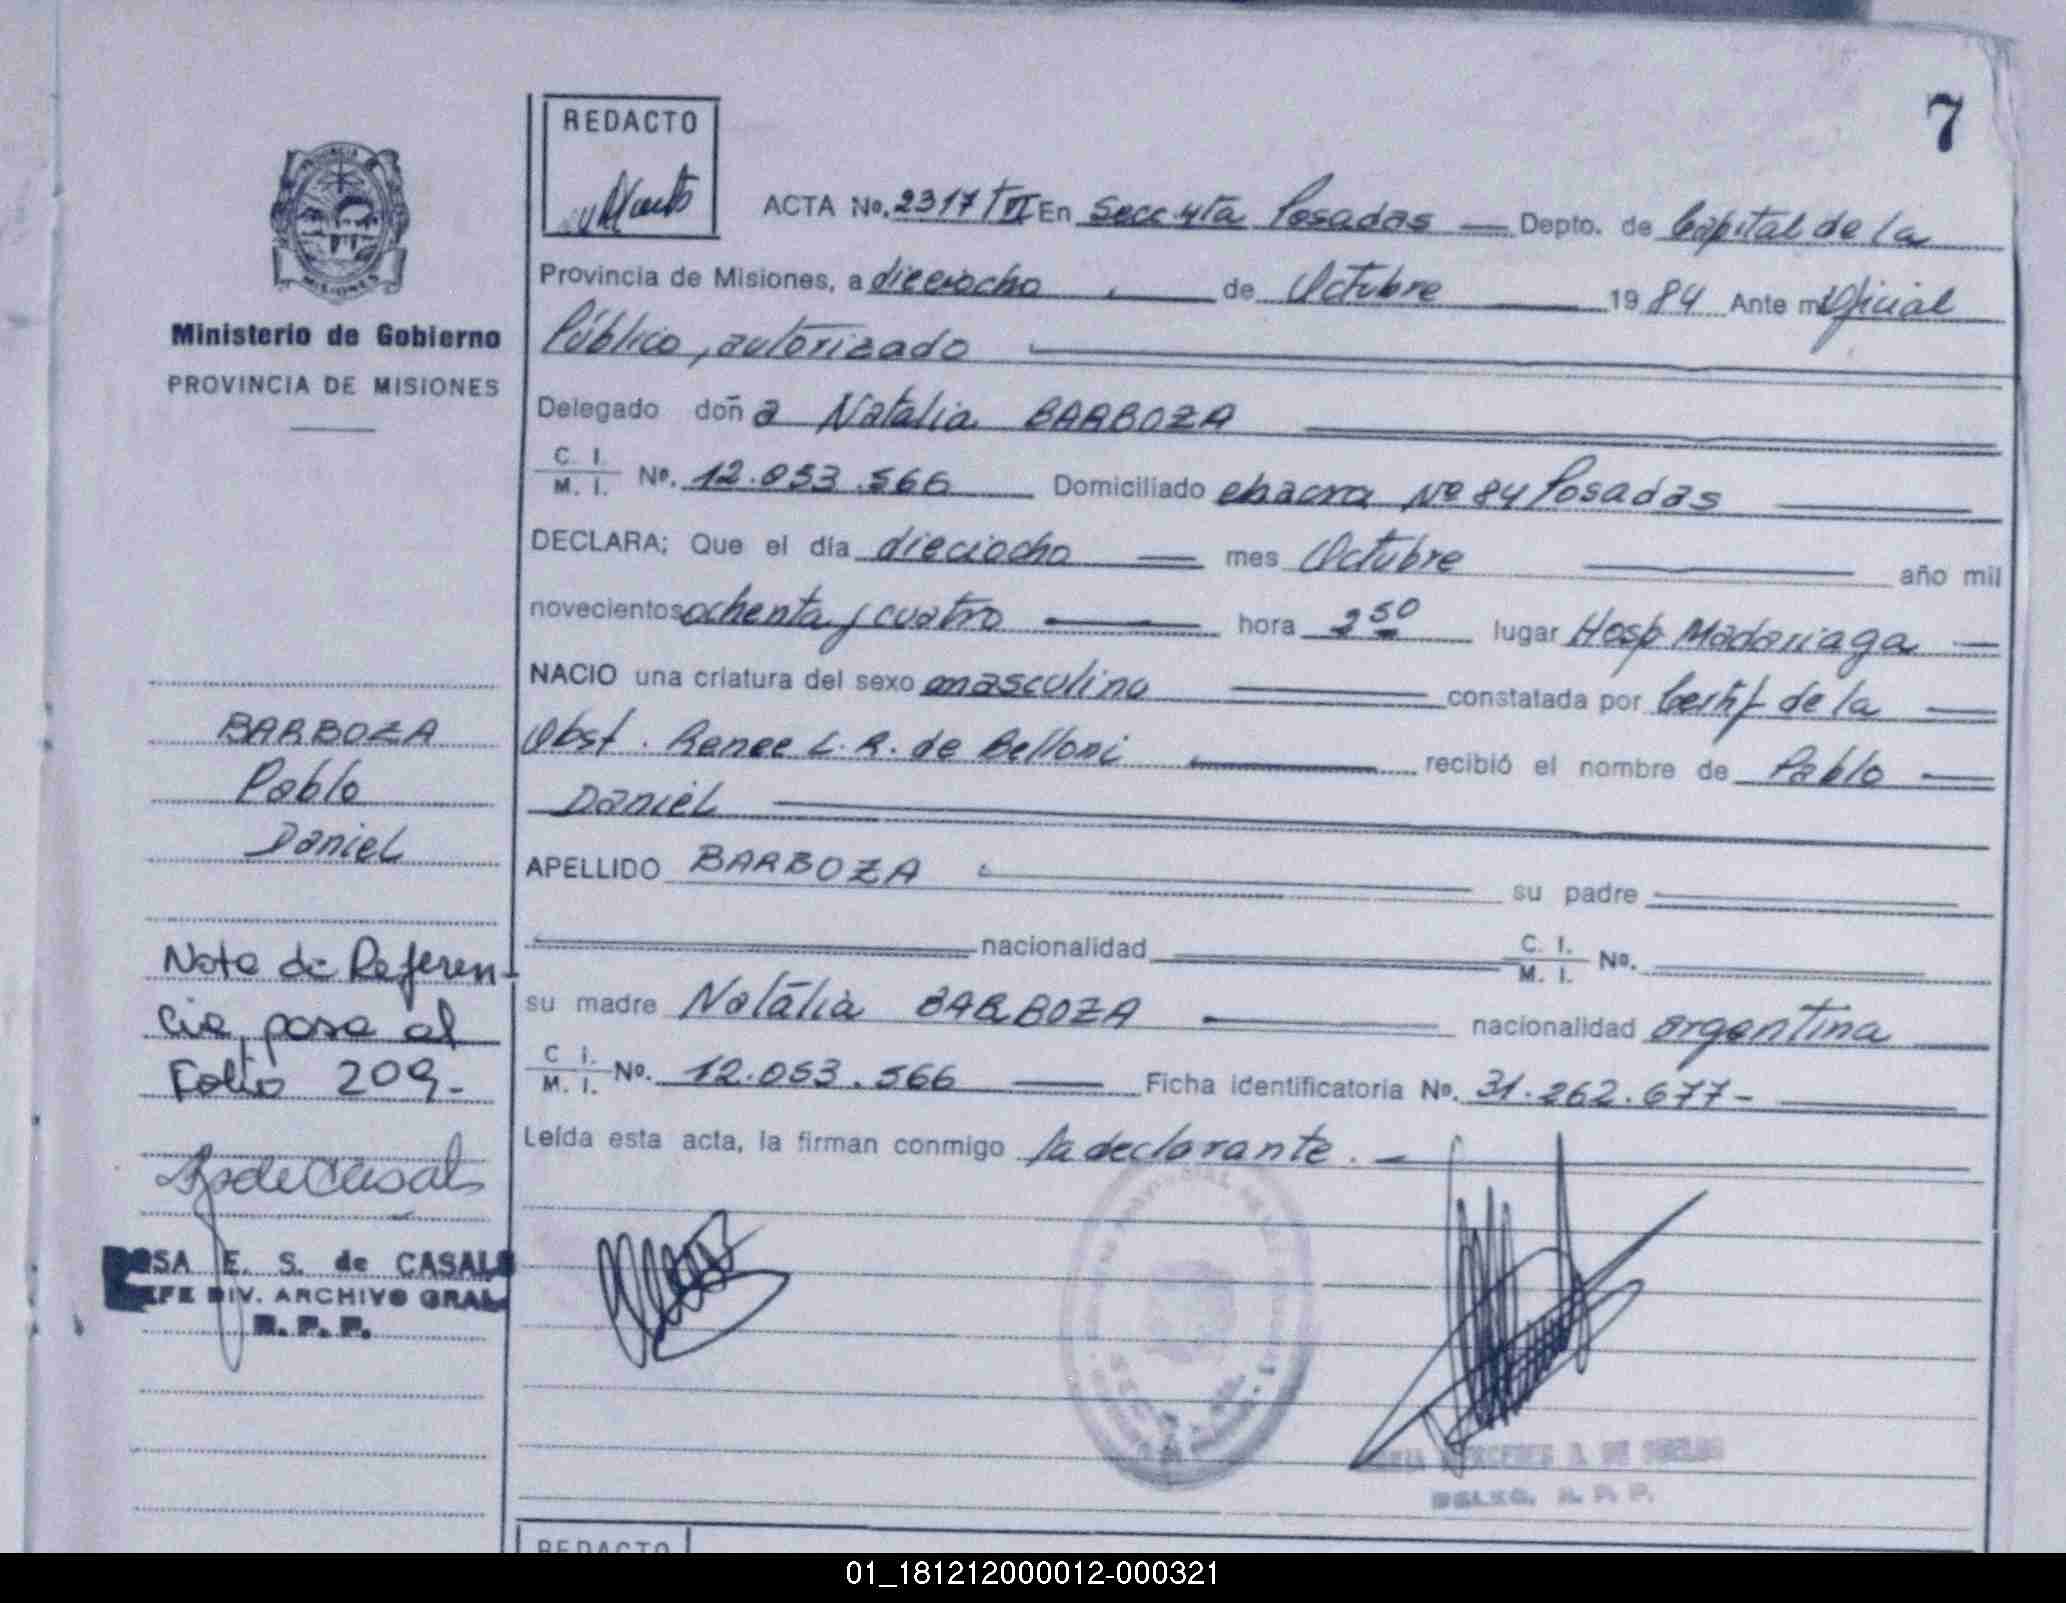 7
REDACTO
ACTA No. 2317 T VI En Secc 4ta Posadas Depto. de Capital de la
Provincia de Misiones, a dieciocho de Octubre 1984 Ante mí Oficial
Público, autorizado
Delegado doña Natalia BARBOZA
C. I. M. I. No. 12.053.566 Domiciliado chacra Nº 84 Posadas
DECLARA; Que el día dieciocho mes Octubre año mil
novecientos ochenta y cuatro hora 2 50 lugar Hosp Madariaga
NACIO una criatura del sexo masculino constatada por Certif de la
Obst. Renee L. R. de Belloni recibió el nombre de Pablo
Daniel
APELLIDO BARBOZA su padre
nacionalidad C. I. M. I. No.
su madre Natália BARBOZA nacionalidad argentina
C. I. M. I. No. 12.053.566 Ficha identificatoria No. 31.262.677-
Leída esta acta, la firman conmigo la declarante.
PROVINCIA DE
MISIONES
Ministerio de Gobierno
PROVINCIA DE MISIONES
BARBOZA
Pablo
Daniel
Nota de Referen-
cia, pasa al
Folio 209-
E. S. de CASALS
DIV. ARCHIVO GRAL
R. P. P.
REDACTO
01_181212000012-000321